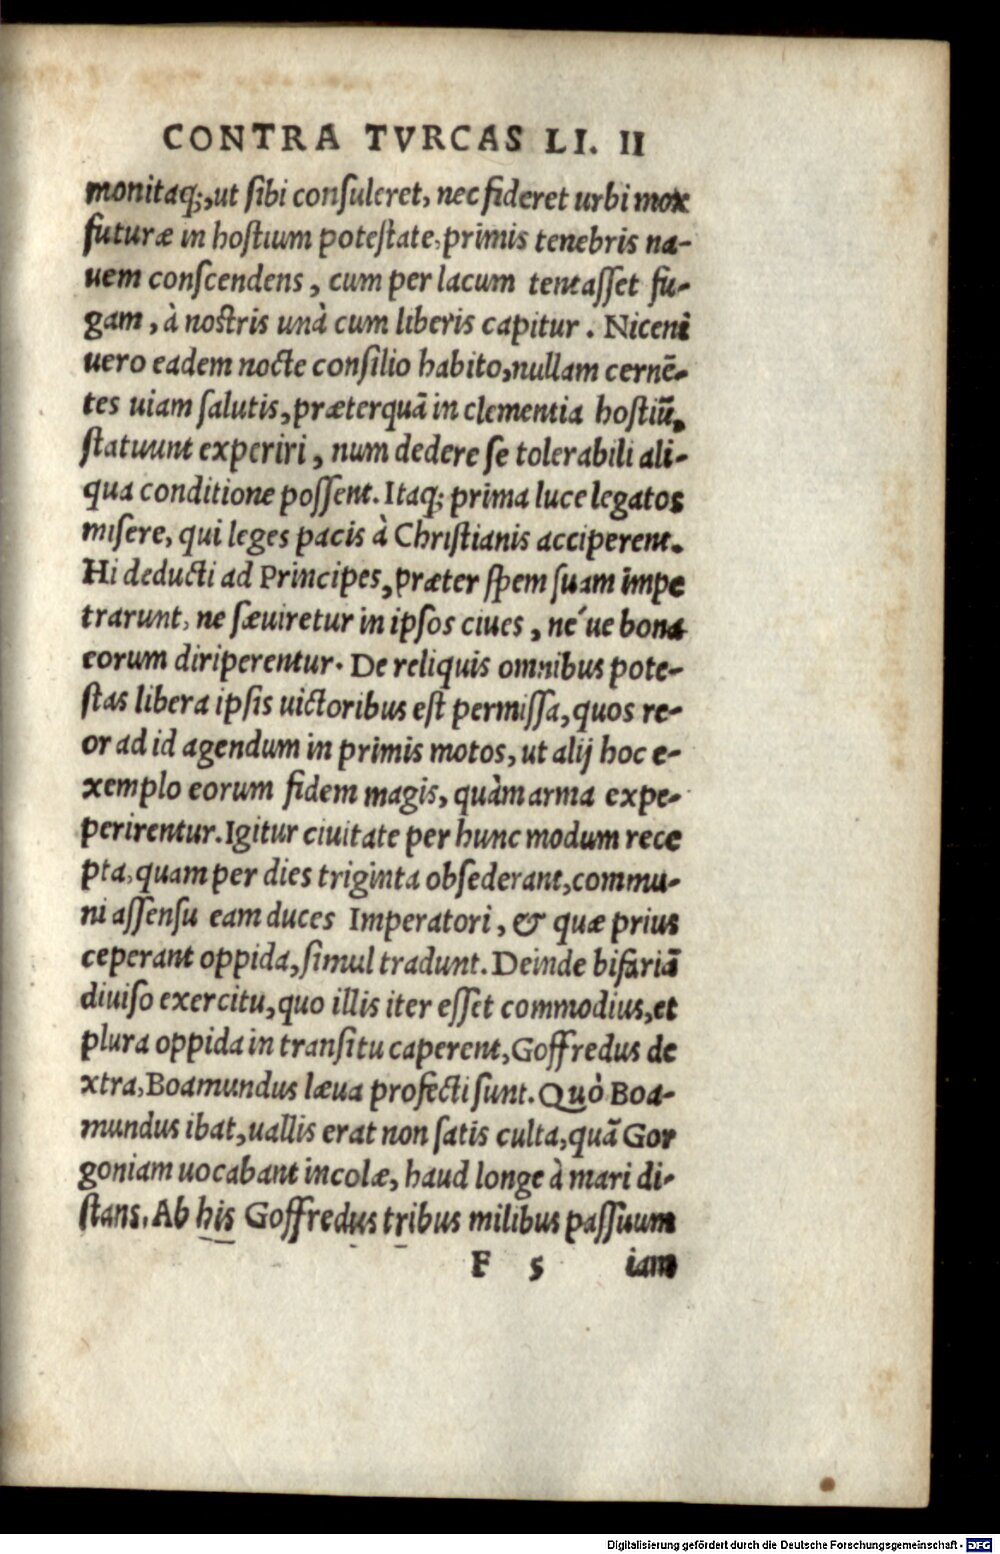 CONTRA TVRCAS LI. II
monitaq;, ut sibi consuleret, nec fideret urbi mox
futuræ in hostium potestate, primis tenebris na-
uem conscendens, cum per lacum tentasset fu-
gam, à nostris unà cum liberis capitur. Niceni
uero eadem nocte consilio habito, nullam cernẽ-
tes uiam salutis, præterquã in clementia hostiũ,
statuunt experiri, num dedere se tolerabili ali-
qua conditione possent. Itaq; prima luce legatos
misere, qui leges pacis à Christianis acciperent.
Hi deducti ad Principes, præter spem suam impe
trarunt, ne sæuiretur in ipsos ciues, né ue bona
eorum diriperentur. De reliquis omnibus pote-
stas libera ipsis uictoribus est permissa, quos re-
or ad id agendum in primis motos, ut alij hoc e-
xemplo eorum fidem magis, quàm arma expe-
perirentur. Igitur ciuitate per hunc modum rece
pta, quam per dies triginta obsederant, commu-
ni assensu eam duces Imperatori, & quæ prius
ceperant oppida, simul tradunt. Deinde bifariã
diuiso exercitu, quo illis iter esset commodius, et
plura oppida in transitu caperent, Goffredus de
xtra, Boamundus læua profecti sunt. Quò Boa-
mundus ibat, uallis erat non satis culta, quã Gor
goniam uocabant incolæ, haud longe à mari di-
stans. Ab his Goffredus tribus milibus passuum
F 5 iam
Digitalisierung gefördert durch die Deutsche Forschungsgemeinschaft - DFG